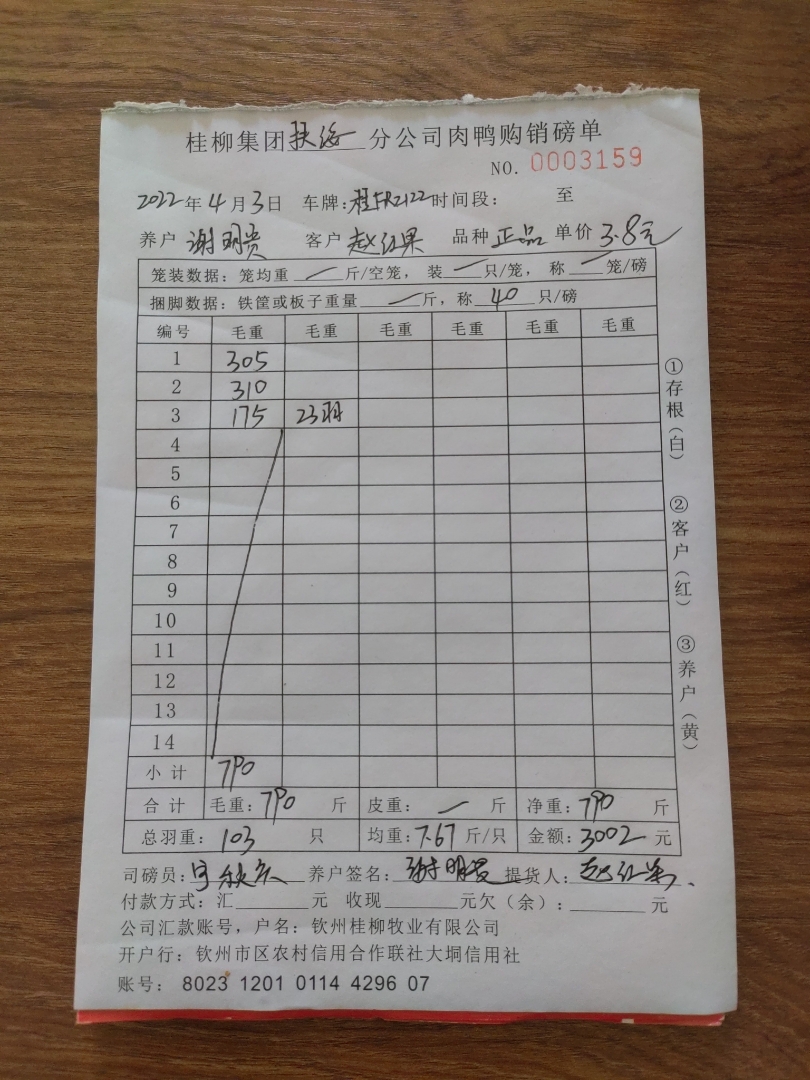 桂柳集团扶绥分公司肉鸭购销磅单
NO. 0003159
2022年4月3日 车牌:桂FR2122 时间段: 至
养户 谢明贵 客户 赵红果 品种 正品 单价 3.8元
笼装数据: 笼均重 一 斤/空笼, 装 一 只/笼, 称 一 笼/磅
捆脚数据: 铁筐或板子重量 一 斤, 称 40 只/磅
编号 毛重 毛重 毛重 毛重 毛重 毛重
1 305
2 310
3 175 23羽
4
5
6
7
8
9
10
11
12
13
14
小计 790
合计 毛重: 790 斤 皮重: 一 斤 净重: 790 斤
总羽重: 103 只 均重: 7.67 斤/只 金额: 3002 元
司磅员: 养户签名: 谢明贵 提货人: 赵红果
付款方式: 汇 元 收现 元欠(余): 元
公司汇款账号, 户名: 钦州桂柳牧业有限公司
开户行: 钦州市区农村信用合作联社大垌信用社
账号: 8023 1201 0114 4296 07
①存根(白) ②客户(红) ③养户(黄)